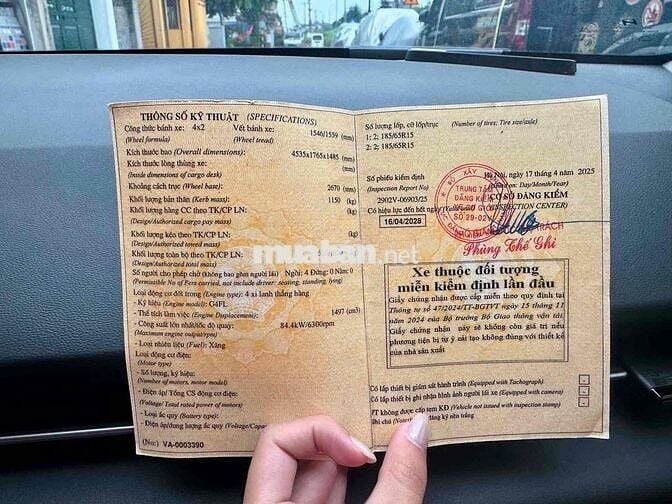 THÔNG SỐ KỸ THUẬT (SPECIFICATIONS)
Công thức bánh xe: 4x2 Vết bánh xe: 1546/1559 (mm)
(Wheel formula) (Wheel tread)
Kích thước bao (Overall dimensions): 4535x1765x1485 (mm)
Kích thước lòng thùng xe: (mm)
(Inside dimensions of cargo desk)
Khoảng cách trục (Wheel base): 2670 (mm)
Khối lượng bản thân (Kerb mass): 1150 (kg)
Khối lượng hàng CC theo TK/CP LN: (kg)
(Design/Authorized cargo pay mass)
Khối lượng kéo theo TK/CP LN:
(Design/Authorized towed mass)
Khối lượng toàn bộ theo TK/CP LN:
(Design/Authorized total mass)
Số người cho phép chở (không bao gồm người lái) Ngồi: 4 Đứng: 0 Nằm: 0
(Permissible No of Pers carried, not include driver: seating, standing, lying)
Loại động cơ đốt trong (Engine type): 4 xi lanh thẳng hàng
- Ký hiệu (Engine model): G4FL
- Thể tích làm việc (Engine Displacement): 1497 (cm3)
- Công suất lớn nhất/tốc độ quay: 84.4kW/6300rpm
(Maximum engine output/rpm)
- Loại nhiên liệu (Fuel): Xăng
Loại động cơ điện:
(Motor type)
- Số lượng, ký hiệu:
(Number of motors, motor model)
- Điện áp/ Tổng CS động cơ điện:
(Voltage/ Total rated power of motors)
- Loại ắc quy (Battery type):
- Điện áp/dung lượng ắc quy (Voltage/Capacity
(No:) VA-0003390
Số lượng lốp, cỡ lốp/trục (Number of tires: Tire size/axle)
1: 2; 185/65R15
2: 2; 185/65R15
Số phiếu kiểm định Hà Nội, ngày 17 tháng 4 năm 2025
(Inspection Report No) on: Day/Month/Year)
2902V-06903/25 CƠ SỞ ĐĂNG KIỂM
Có hiệu lực đến hết ngày (INSPECTION CENTER)
16/04/2028
BỘ XÂY
TRUNG TÂM
ĐĂNG KIỂM
XE CƠ GIỚI
SỐ 29-02V
TRÁCH
Phùng Thế Ghi
muaban.net
Xe thuộc đối tượng
miễn kiểm định lần đầu
Giấy chứng nhận được cấp miễn theo quy định tại
Thông tư số 47/2024/TT-BGTVT ngày 15 tháng 11
năm 2024 của Bộ trưởng Bộ Giao thông vận tải.
Giấy chứng nhận này sẽ không còn giá trị nếu
phương tiện bị tự ý cải tạo không đúng với thiết kế
của nhà sản xuất
Có lắp thiết bị giám sát hành trình (Equipped with Tachograph)
Có lắp thiết bị ghi nhận hình ảnh người lái xe (Equipped with camera)
PT không được cấp tem KĐ (Vehicle not issued with inspection stamp)
Ghi chú đăng ký nền trắng